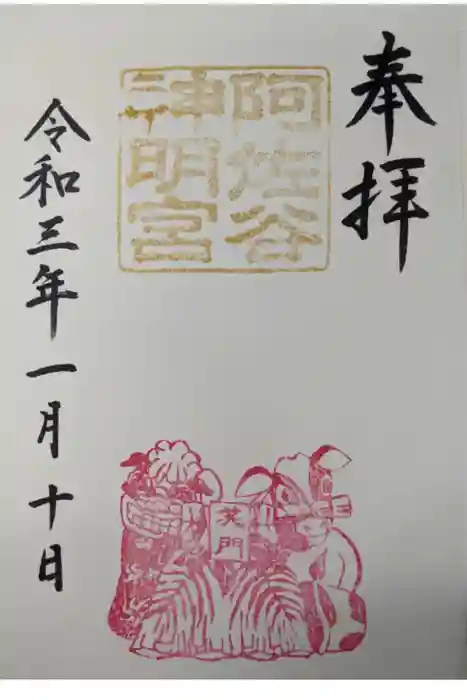 奉拝
阿佐谷
神明宮
笑門
令和三年一月十日